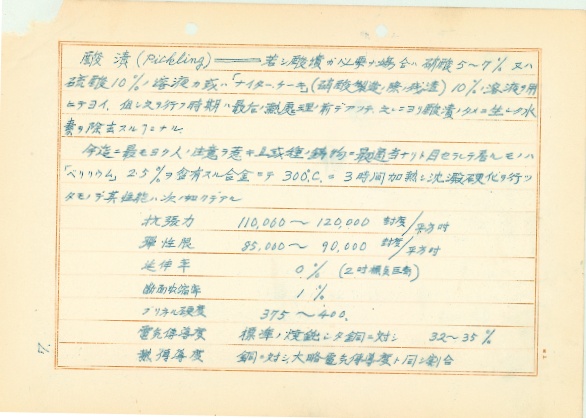 酸漬(Pickling)━━若シ酸漬ガ必要ナ場合ハ硝酸5～7%又ハ
硫酸10%ノ溶液カ或ハ「ナイター、ケーキ」(硝酸製造ノ際ノ残渣)10%ノ溶液ヲ用
ヒテヨイ、但シ之ヲ行フ時期ハ最后ノ熱処理ノ前デアツテ、之ニヨリ酸漬ノタメニ生シタ水
素ヲ除去スルコトニナル
今迄ニ最モヨク人ノ注意ヲ惹キ且或種ノ鋳物ニ最適当ナリト目セラレテ居ルモノハ
「ベリリウム」2.5%ヲ含有スル合金ニテ300℃.ニ3時間加熱シ沈澱硬化ヲ行ツ
タモノデ其性能ハ次ノ如クデアル
抗張力 110,000～120,000 封度/平方吋
弾性限 85,000～90,000 封度/平方吋
延伸率 0% (2吋標点距離)
断面収縮率 1%
ブリネル硬度 375～400.
電気伝導度 標準ノ焼鈍シタ銅ニ対シ 32～35%
熱伝導度 銅ニ対シ大略電気伝導度ト同ジ割合